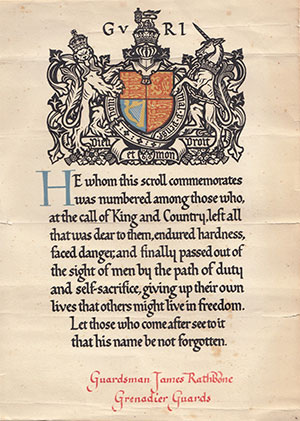 G V R I
Dieu et mon Droit
HE whom this scroll commemorates
was numbered among those who,
at the call of King and Country, left all
that was dear to them, endured hardness,
faced danger, and finally passed out of
the sight of men by the path of duty
and self-sacrifice, giving up their own
lives that others might live in freedom.
Let those who come after see to it
that his name be not forgotten.
Guardsman James Rathbone
Grenadier Guards